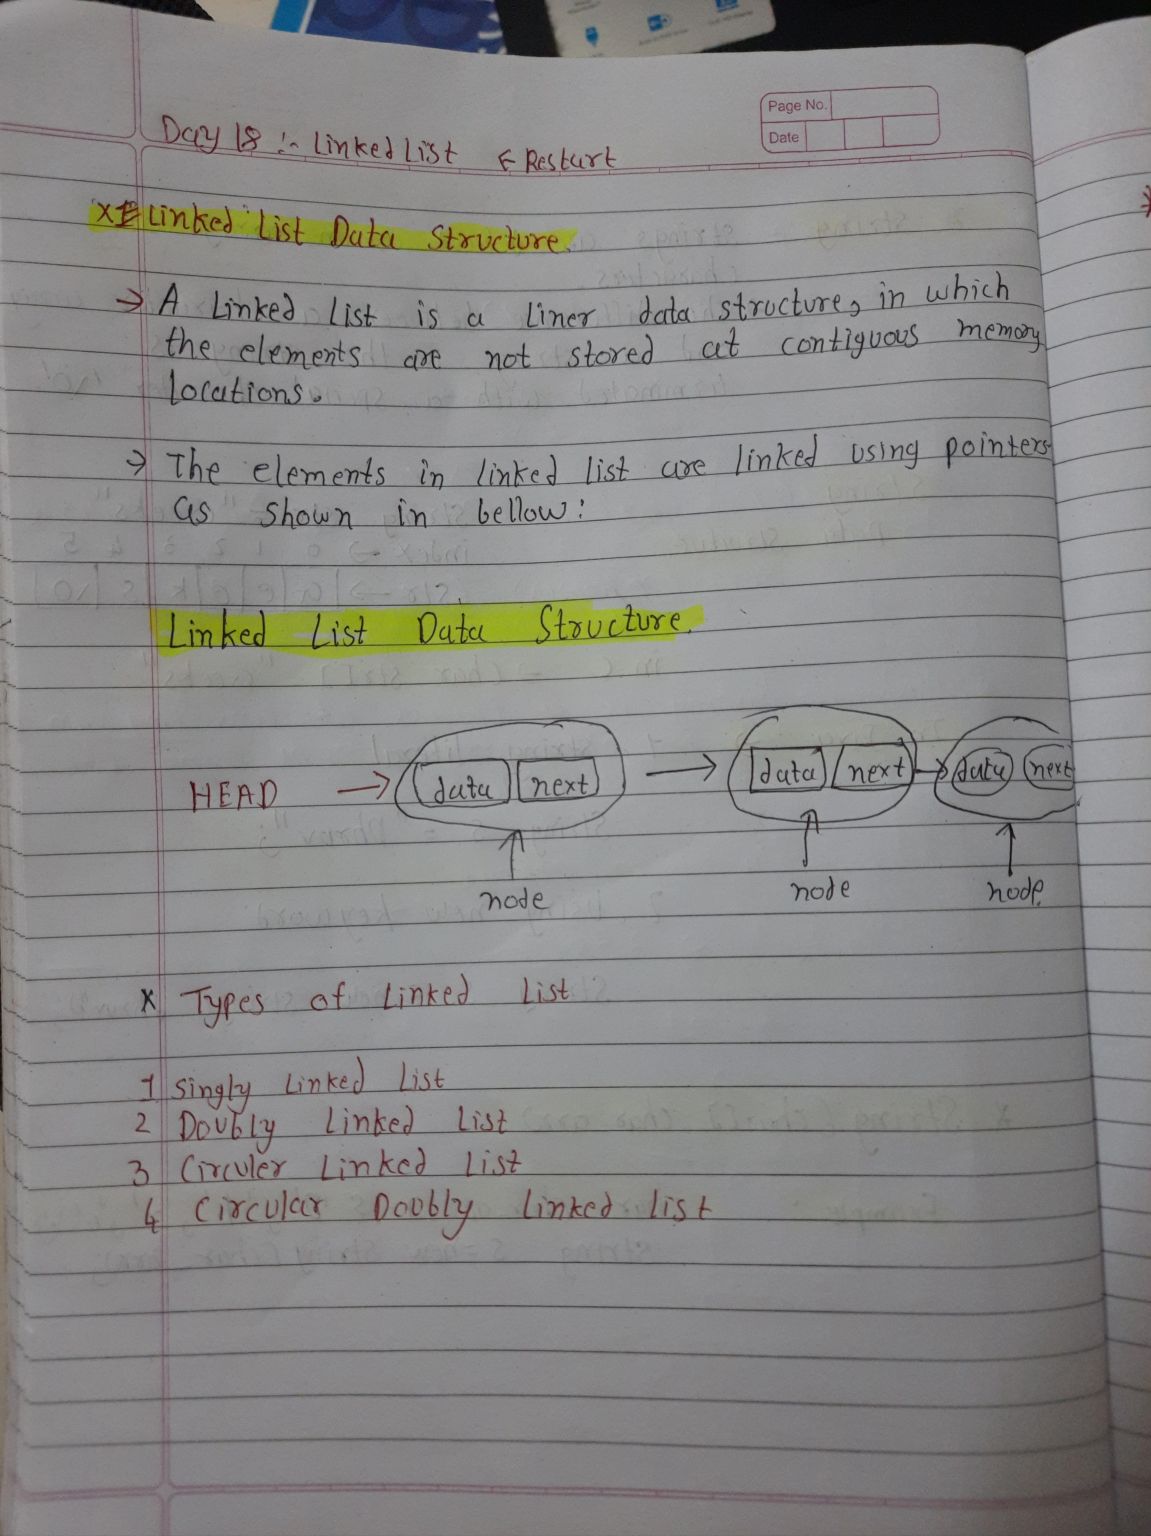 Page No.
Date
Day 18 :- Linked List & Restart
Linked List Data Structure.
→ A Linked List is a Liner data structure, in which
the elements are not stored at contiguous memory
Locations.
→ The elements in linked list are linked using pointers
as shown in bellow:
Linked List Data Structure.
HEAD → data next → data next → data next
node node node
x Types of Linked List
1 Singly Linked List
2 Doubly Linked List
3 Circuler Linked List
4 Circular Doubly Linked List